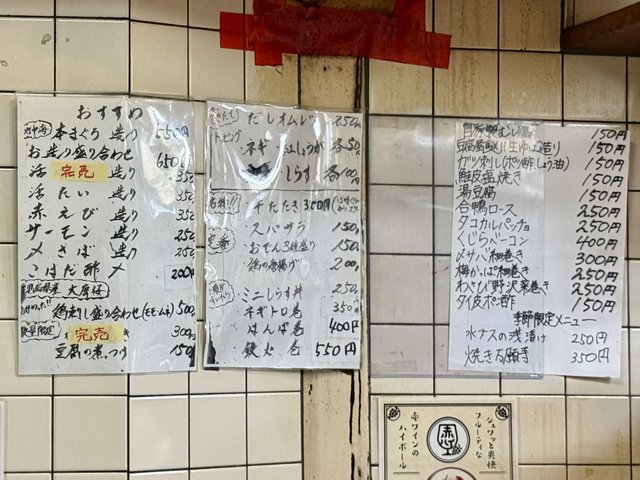 おすすめ
本まぐろ 造り 550円
お造り盛り合わせ 650
活 完売 造り 350
活 たい 造り 350
赤えび 造り 350
サーモン 造り 250
〆さば 造り 250
こはだ酢〆 200円
大摩桜
鶏刺し盛り合わせ(モモ・ムネ) 500
数量限定
完売 300
豆腐の煮つけ 150
だしオムレツ 250
トッピング ネギ 紅しょうが 各50
しらす 各100
名物!! 牛たたき 300円
定番 スパサラ 150
おでん3種盛り 150
鶏の唐揚げ 200
ミニしらす丼 250
ネギトロ巻 350
はんぱ巻 400円
鉄火巻 550円
150円
150円
ガツ刺し(ポン酢しょう油) 150円
鮭皮塩焼き 150円
湯豆腐 150円
合鴨ロース 250円
タコカルパッチョ 250円
くじらベーコン 400円
〆サバ細巻き 300円
梅かっぱ細巻き 250円
わさび野沢菜巻き 250円
タイ皮ポン酢 150円
季節限定メニュー
水ナスの浅漬け 250円
焼き万願寺 350円
シュワッと爽快
フルーティな
赤ハイ
赤ワインの
ハイボール